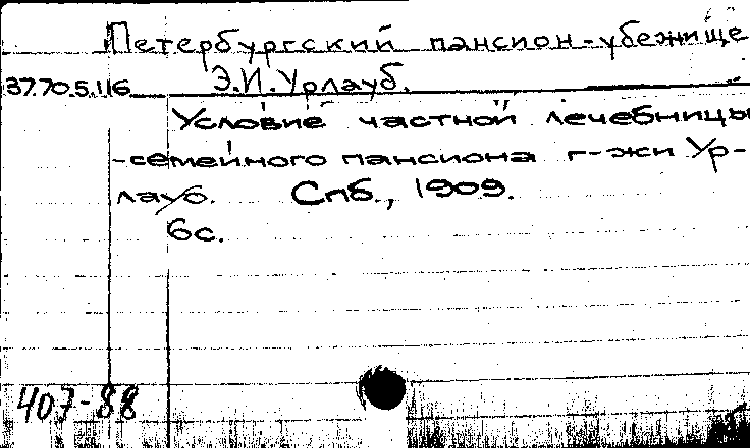 Петербургский пансион-убежище
37.70.5.116 Э.И.Урлауб.
Условие частной лечебницы
-семейного пансиона г-жи Ур-
лауб. Спб., 1909.
6с.
407-88